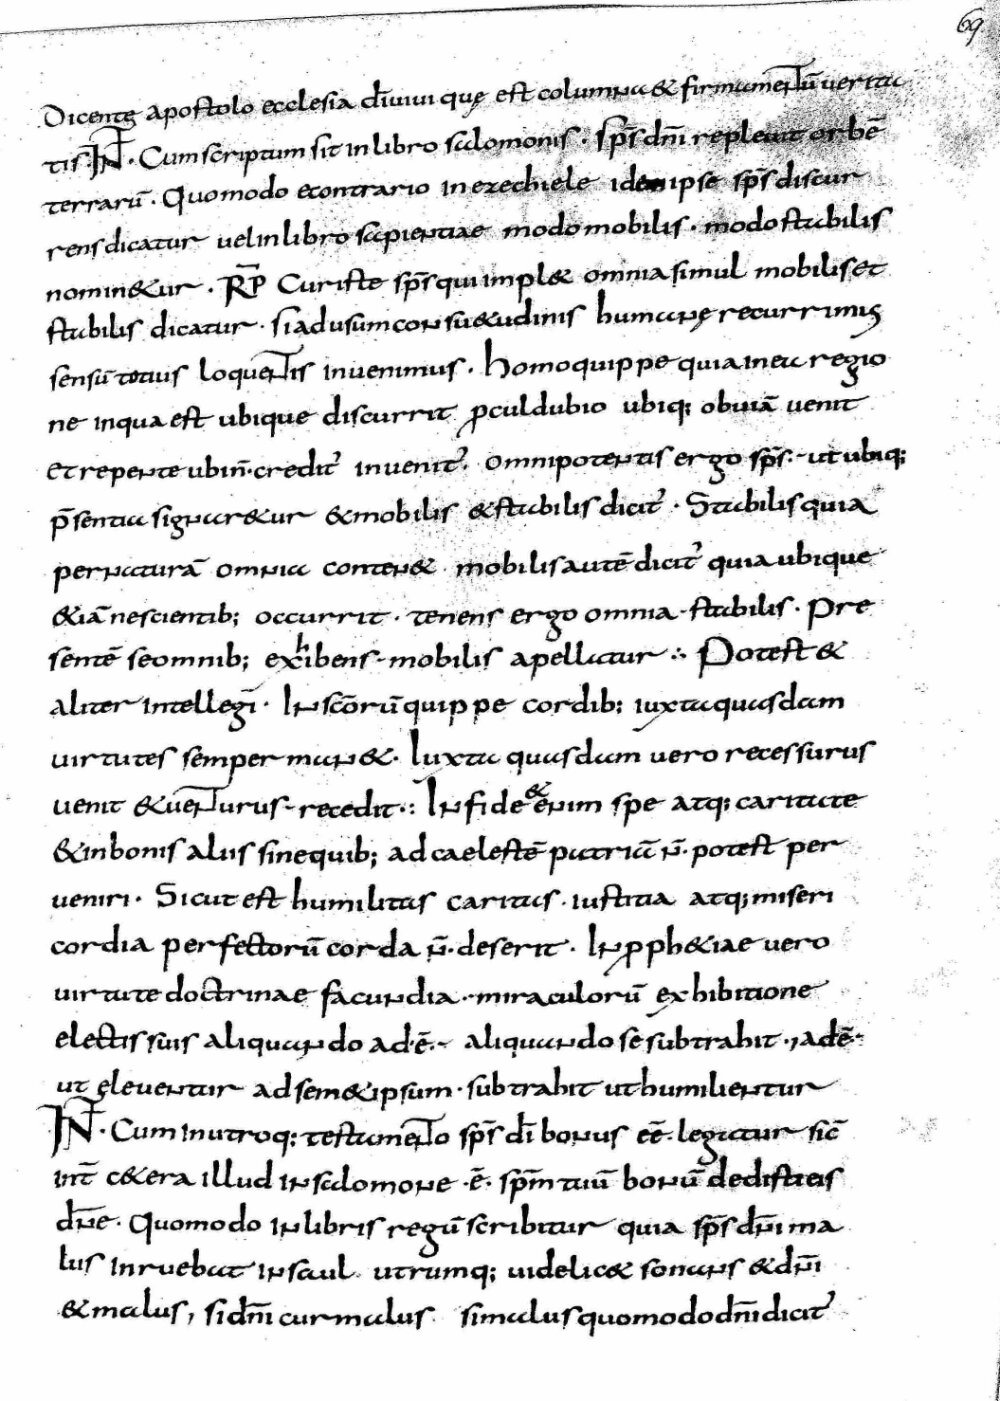 69
Dicente apostolo ecclesia dī uiui quę est columna & firmamentū uerita
tis. IN̄T. Cum scriptum sit in libro salomonis. sp̄s dn̄i repleuit orbē
terrarū. Quomodo econtrario in ezechiele idem ipse sp̄s discur
rens dicatur uel in libro sapientiae modo mobilis. modo stabilis
nomin&ur. R̄P Cur iste sp̄s qui impl& omnia simul mobilis et
stabilis dicatur. si ad usum consu&udinis humanę recurrimus
sensū totius loquentis inuenimus. Homo quippe quia in ea regio
ne in qua est ubique discurrit ꝓculdubio ubiq; obuiā uenit
et repente ubi n̄. credit᷑ inuenit᷑. Omnipotentis ergo sp̄s. ut ubiq;
p̄sentia signar&ur & mobilis & stabilis dicit᷑. Stabilis quia
per naturā omnia conten& mobilis autē dicit᷑ quia ubique
& iā nescientib; occurrit. tenens ergo omnia. stabilis. Pre
sentē se omnib; exhibens. mobilis apellatur ∴ Potest &
aliter intellegī. In scōrū quippe cordib; iuxta quasdam
uirtutes semper man&. Iuxta quasdam uero recessurus
uenit & uenturus. recedit.: In fide & enim spe atq; caritate
& in bonis aliis sine quib; ad caelestē patriā n̄. potest per
ueniri. Sicut est humilitas caritas. iustitia atq; miseri
cordia perfectorū corda n̄. deserit. In ꝓph&iae uero
uirtute doctrinae facundia. miraculorū exhibitione
electis suis aliquando adē. aliquando se subtrahit., adē.
ut eleuentur ad sem&ipsum. subtrahit ut humilientur
IN̄T. Cum in utroq; testamento sp̄s dī bonus eē. legatur sic̄
int̄ c&era illud in salomone .ē. sp̄m tuū bonū dedisti eis
dn̄e. Quomodo in libris regū scribitur quia sp̄s dn̄i ma
lus inruebat in saul utrumq; uidelic& sonans & dn̄i
& malus, si dn̄i cur malus si malus quomodo dn̄i dicit᷑